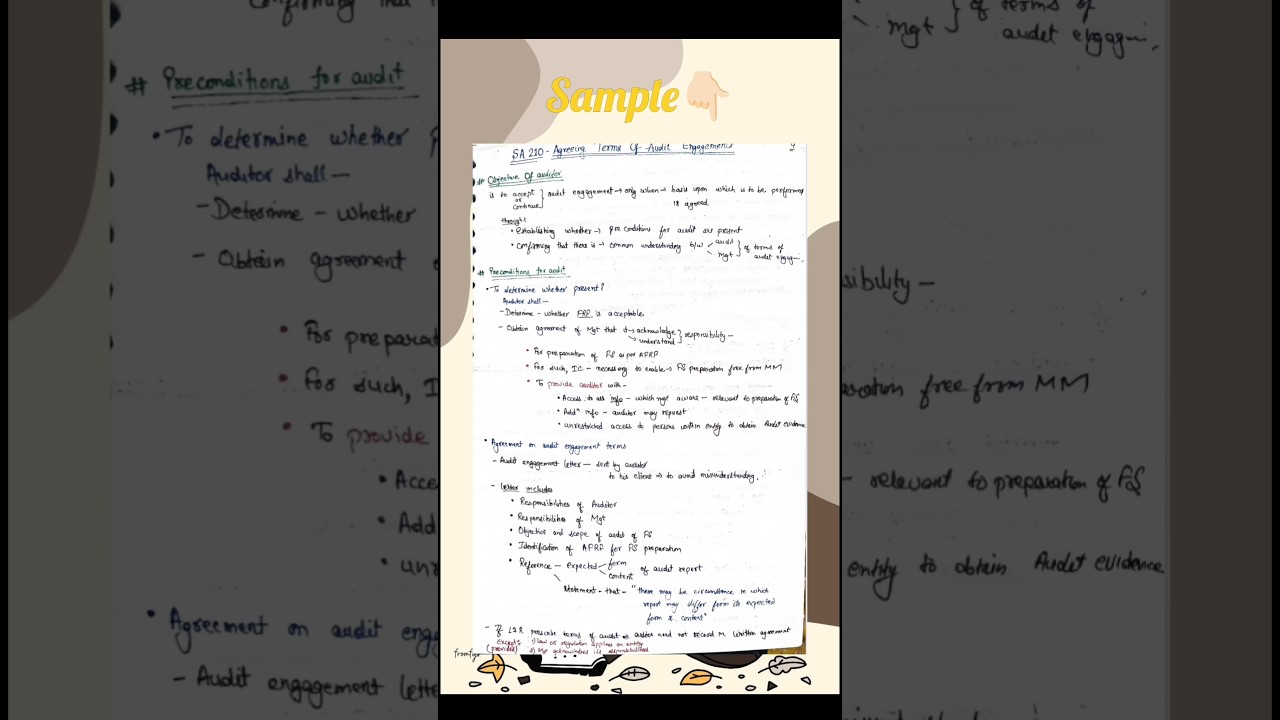 Sample
SA 210 - Agreeing Terms Of Audit Engagements
# Objective Of auditor
is to accept or continue } audit engagement → only when → basis upon which is to be performed is agreed.
through:
• Establishing whether → pre conditions for audit are present
• Confirming that there is → common understanding b/w < audit mgt } of terms of audit engagm.
# Preconditions for audit
• To determine whether present?
Auditor shall —
- Determine - whether FRF is acceptable
- Obtain agreement of Mgt that it → acknowledge understand } responsibility —
• For preparation of FS as per AFRF
• For such, IC - necessary to enable → FS preparation free from MM
• To provide auditor with -
• Access to all info - which mgt aware - relevant to preparation of FS
• Addn info - auditor may request
• unrestricted access to persons within entity to obtain Audit evidence
• Agreement on audit engagement terms
- Audit engagement letter — sent by auditor
to his client → to avoid misunderstanding.
- Letter includes
• Responsibilities of Auditor
• Responsibilities of Mgt
• Objective and scope of audit of FS
• Identification of AFRF for FS preparation
• Reference - expected < form content of audit report
Statement - that - "there may be circumstance in which
report may differ from its expected
form & content"
- If L&R prescribe terms of audit → auditor need not record in written agreement
Except: 1) law or regulation applies on entity
(provided) 2) Mgt acknowledged its responsibilities